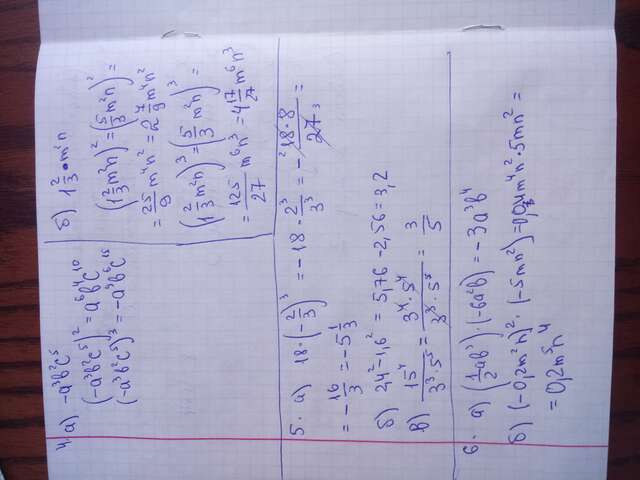 4. а) -a³b²c⁵
(-a³b²c⁵)² = a⁶b⁴c¹⁰
(-a³b²c⁵)³ = -a⁹b⁶c¹⁵
б) 1 2/3 • m²n
(1 2/3 m²n)² = (5/3 m²n)² =
= 25/9 m⁴n² = 2 7/9 m⁴n²
(1 2/3 m²n)³ = (5/3 m²n)³ =
= 125/27 m⁶n³ = 4 17/27 m⁶n³
5. а) 18 · (-2/3)³ = -18 · 2³/3³ = - 18 · 8/27 =
= - 16/3 = -5 1/3
б) 2,4² - 1,6² = 5,76 - 2,56 = 3,2
в) 15⁴/3³·5⁵ = 3⁴·5⁴/3³·5⁵ = 3/5
6. а) (1/2 ab)·(-6a²b³) = -3a³b⁴
б) (-0,2m²n)² · (-5mn²) = 0,04m⁴n² · 5mn² =
= 0,2m⁵n⁴